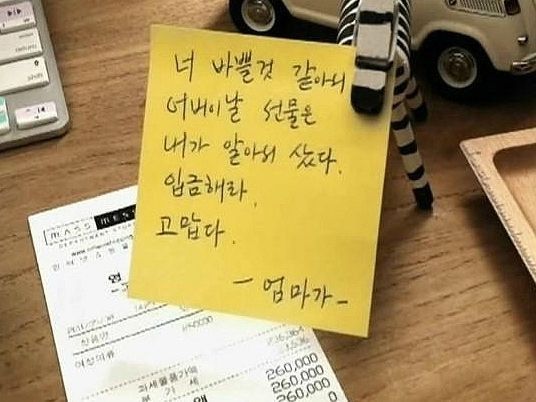 너 바쁠것 같아서
어버이날 선물은
내가 알아서 샀다.
입금해라.
고맙다.
- 엄마가 -
MASS MES
DEPARTMENT STOR
여성의류
236,364
과세물품가액
부가세
260,000
260,000
260,000
0